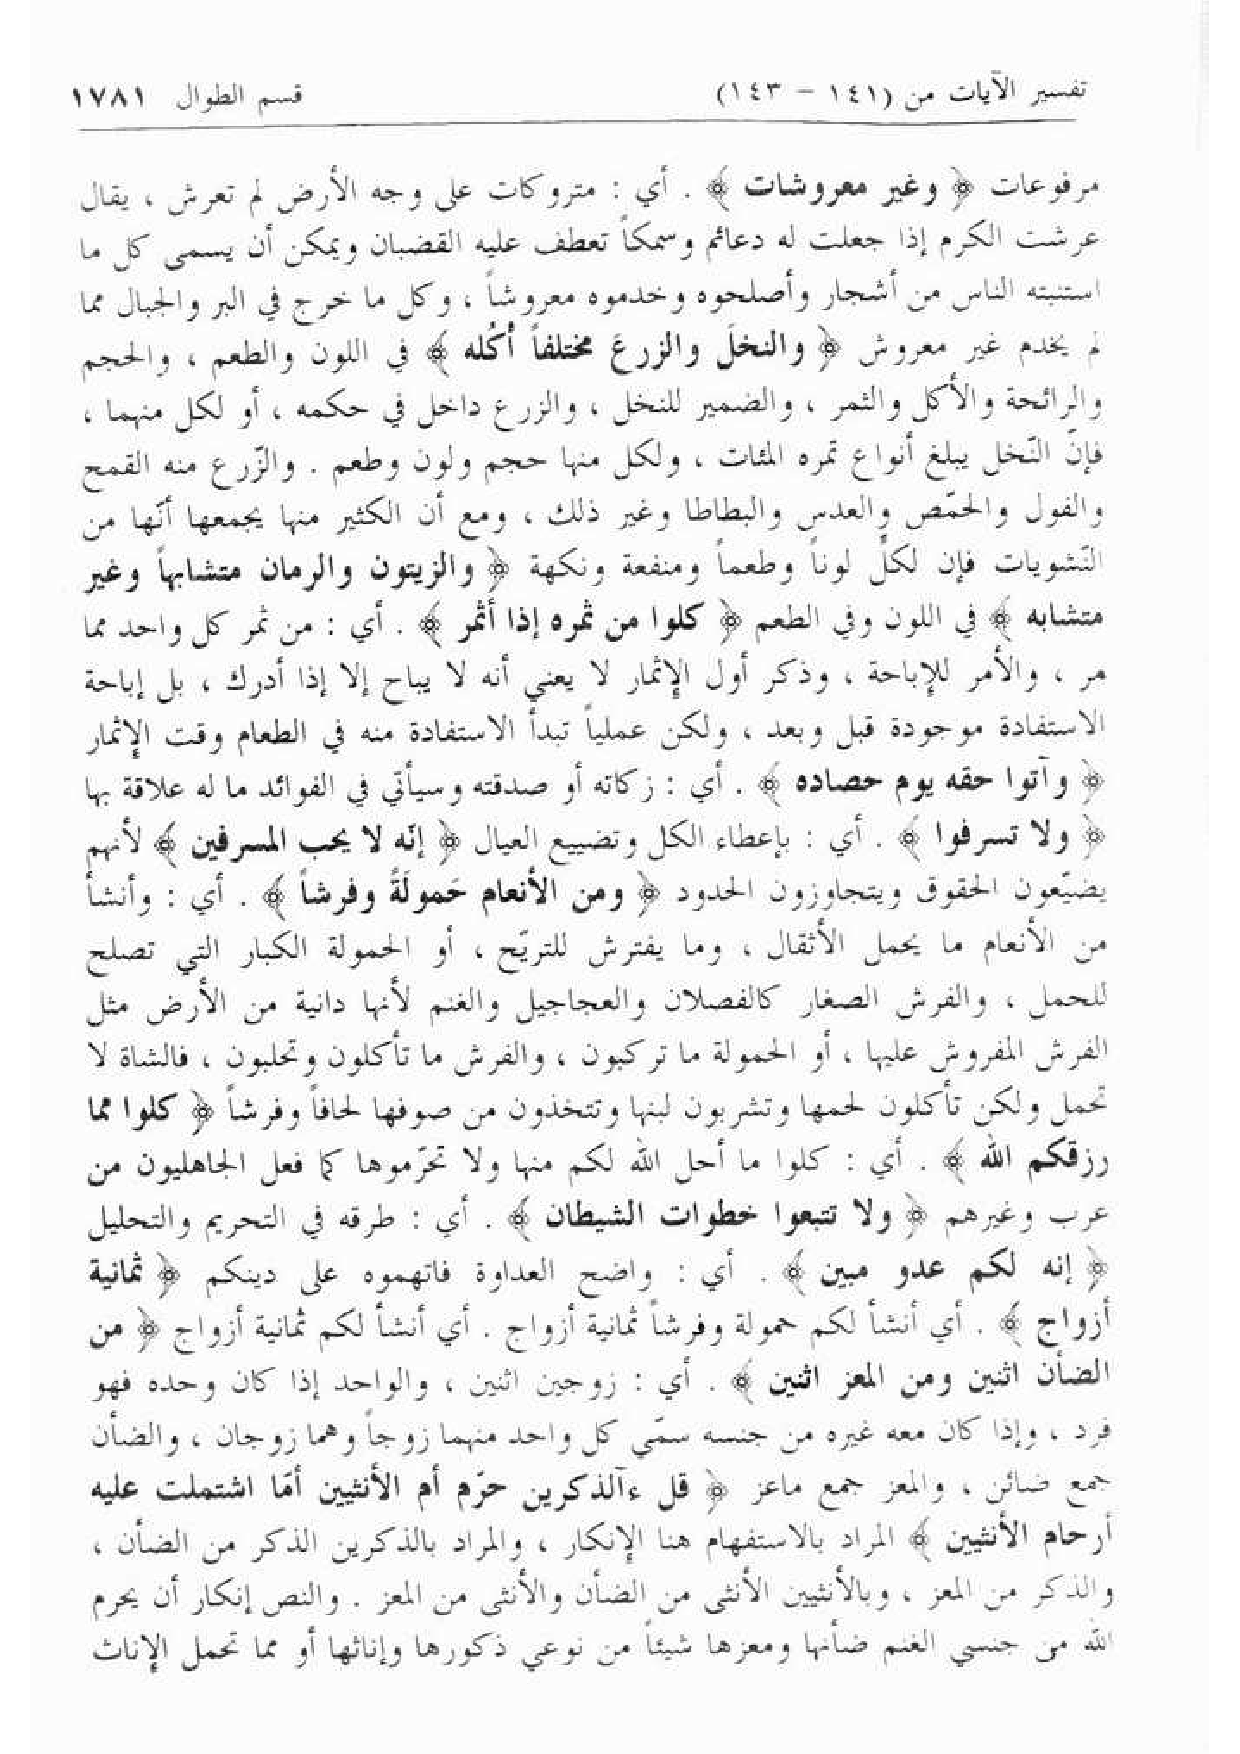 تفسير الآيات من (١٤١ – ١٤٣) قسم الطوال ١٧٨١
مرفوعات ﴿ وغير معروشات ﴾ . أي : متروكات على وجه الأرض لم تعرش ، يقال
عرشت الكرم إذا جعلت له دعائم وسمكاً تعطف عليه القضبان ويمكن أن يسمى كل ما
استنبته الناس من أشجار وأصلحوه وخدموه معروشاً ، وكل ما خرج في البر والجبال مما
لم يخدم غير معروش ﴿ والنخلَ والزرعَ مختلفاً أُكُله ﴾ في اللون والطعم ، والحجم
والرائحة والأكل والثمر ، والضمير للنخل ، والزرع داخل في حكمه ، أو لكل منهما ،
فإنّ النّخل يبلغ أنواع تمره المئات ، ولكل منها حجم ولون وطعم . والزّرع منه القمح
والفول والحمّص والعدس والبطاطا وغير ذلك ، ومع أن الكثير منها يجمعها أنّها من
النّشويات فإن لكلٍّ لوناً وطعماً ومنفعة ونكهة ﴿ والزيتون والرمان متشابهاً وغير
متشابه ﴾ في اللون وفي الطعم ﴿ كلوا من ثمره إذا أثمر ﴾ . أي : من ثمر كل واحد مما
مر ، والأمر للإباحة ، وذكر أول الإثمار لا يعني أنه لا يباح إلا إذا أدرك ، بل إباحة
الاستفادة موجودة قبل وبعد ، ولكن عملياً تبدأ الاستفادة منه في الطعام وقت الإثمار
﴿ وآتوا حقه يوم حصاده ﴾ . أي : زكاته أو صدقته وسيأتي في الفوائد ما له علاقة بها
﴿ ولا تسرفوا ﴾ . أي : بإعطاء الكل وتضييع العيال ﴿ إنّه لا يحب المسرفين ﴾ لأنهم
يضيّعون الحقوق ويتجاوزون الحدود ﴿ ومن الأنعام حَمولَةً وفرشاً ﴾ . أي : وأنشأ
من الأنعام ما يحمل الأثقال ، وما يفترش للتريّح ، أو الحمولة الكبار التي تصلح
للحمل ، والفرش الصغار كالفصلان والعجاجيل والغنم لأنها دانية من الأرض مثل
الفرش المفروش عليها ، أو الحمولة ما تركبون ، والفرش ما تأكلون وتحلبون ، فالشاة لا
تحمل ولكن تأكلون لحمها وتشربون لبنها وتتخذون من صوفها لحافاً وفرشاً ﴿ كلوا مما
رزقكم الله ﴾ . أي : كلوا ما أحل الله لكم منها ولا تحرّموها كما فعل الجاهليون من
عرب وغيرهم ﴿ ولا تتبعوا خطوات الشيطان ﴾ . أي : طرقه في التحريم والتحليل
﴿ إنه لكم عدو مبين ﴾ . أي : واضح العداوة فاتهموه على دينكم ﴿ ثمانية
أزواج ﴾ . أي أنشأ لكم حمولة وفرشاً ثمانية أزواج . أي أنشأ لكم ثمانية أزواج ﴿ من
الضأن اثنين ومن المعز اثنين ﴾ . أي : زوجين اثنين ، والواحد إذا كان وحده فهو
فرد ، وإذا كان معه غيره من جنسه سمّي كل واحد منهما زوجاً وهما زوجان ، والضأن
جمع ضائن ، والمعز جمع ماعز ﴿ قل ءآلذكرين حرّم أم الأنثيين أمّا اشتملت عليه
أرحام الأنثيين ﴾ المراد بالاستفهام هنا الإنكار ، والمراد بالذكرين الذكر من الضأن ،
والذكر من المعز ، وبالأنثيين الأنثى من الضأن والأنثى من المعز . والنص إنكار أن يحرم
الله من جنسي الغنم ضأنها ومعزها شيئاً من نوعي ذكورها وإناثها أو مما تحمل الإناث